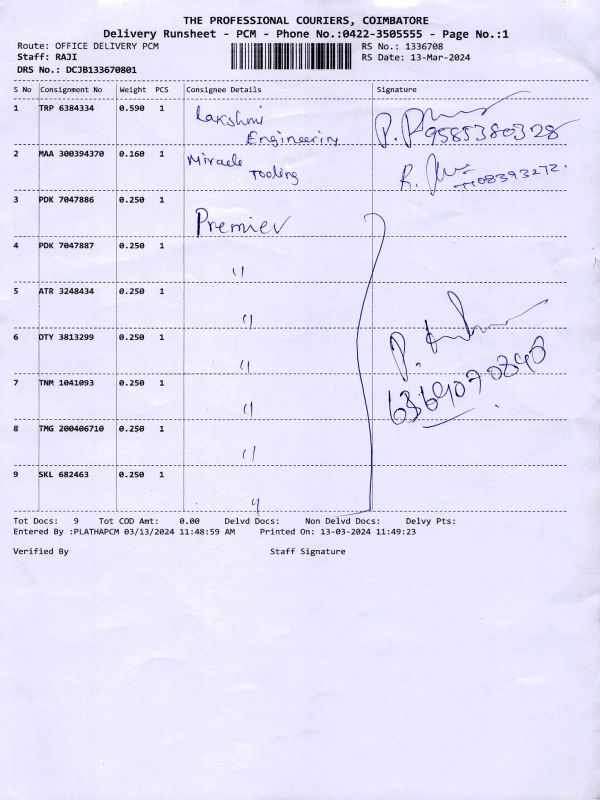 THE PROFESSIONAL COURIERS, COIMBATORE
Delivery Runsheet - PCM - Phone No.:0422-3505555 - Page No.:1
Route: OFFICE DELIVERY PCM RS No.: 1336708
Staff: RAJI RS Date: 13-Mar-2024
DRS No.: DCJB133670801
S No Consignment No Weight PCS Consignee Details Signature
1 TRP 6384334 0.590 1 Lakshmi Engineering 9585380328
2 MAA 300394370 0.160 1 Miracle Tooling R.
3 PDK 7047886 0.250 1 Premier
4 PDK 7047887 0.250 1 "
5 ATR 3248434 0.250 1 "
6 DTY 3813299 0.250 1 " P.
7 TNM 1041093 0.250 1 " 6369070840
8 TMG 200406710 0.250 1 "
9 SKL 682463 0.250 1 "
Tot Docs: 9 Tot COD Amt: 0.00 Delvd Docs: Non Delvd Docs: Delvy Pts:
Entered By :PLATHAPCM 03/13/2024 11:48:59 AM Printed On: 13-03-2024 11:49:23
Verified By Staff Signature